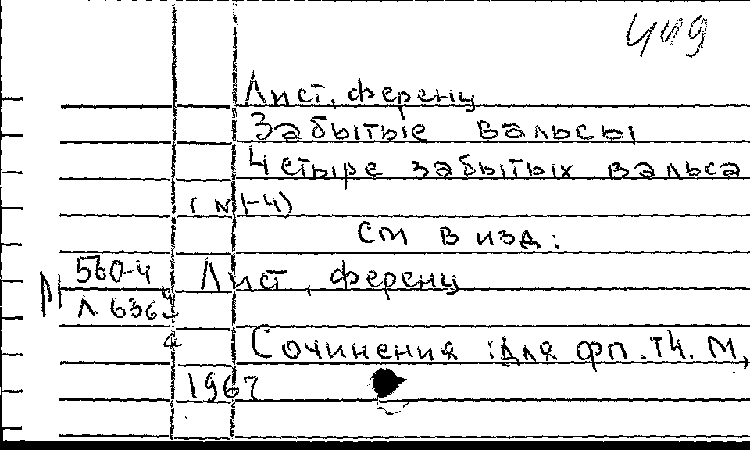 449
Лист, Ференц
Забытые вальсы
Четыре забытых вальса
(№1-4)
см в изд:
560-4 Лист, Ференц
Л 636
Сочинения :Для фп. Т4. М,
1967